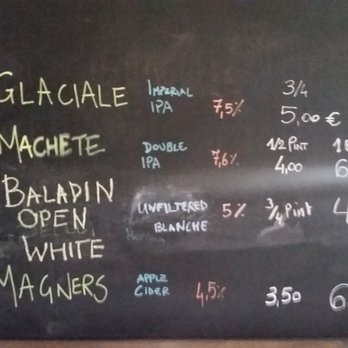 GLACIALE IMPERIAL IPA 7,5% 3/4 5,00 €
MACHETE DOUBLE IPA 7,6% 1/2 PINT 4,00 6
BALADIN OPEN WHITE UNFILTERED BLANCHE 5% 3/4 PINT 4
MAGNERS APPLE CIDER 4,5% 3,50 6